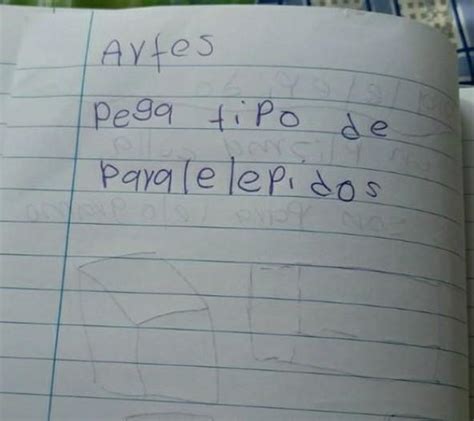 Artes
Pega tipo de
Paralelepidos